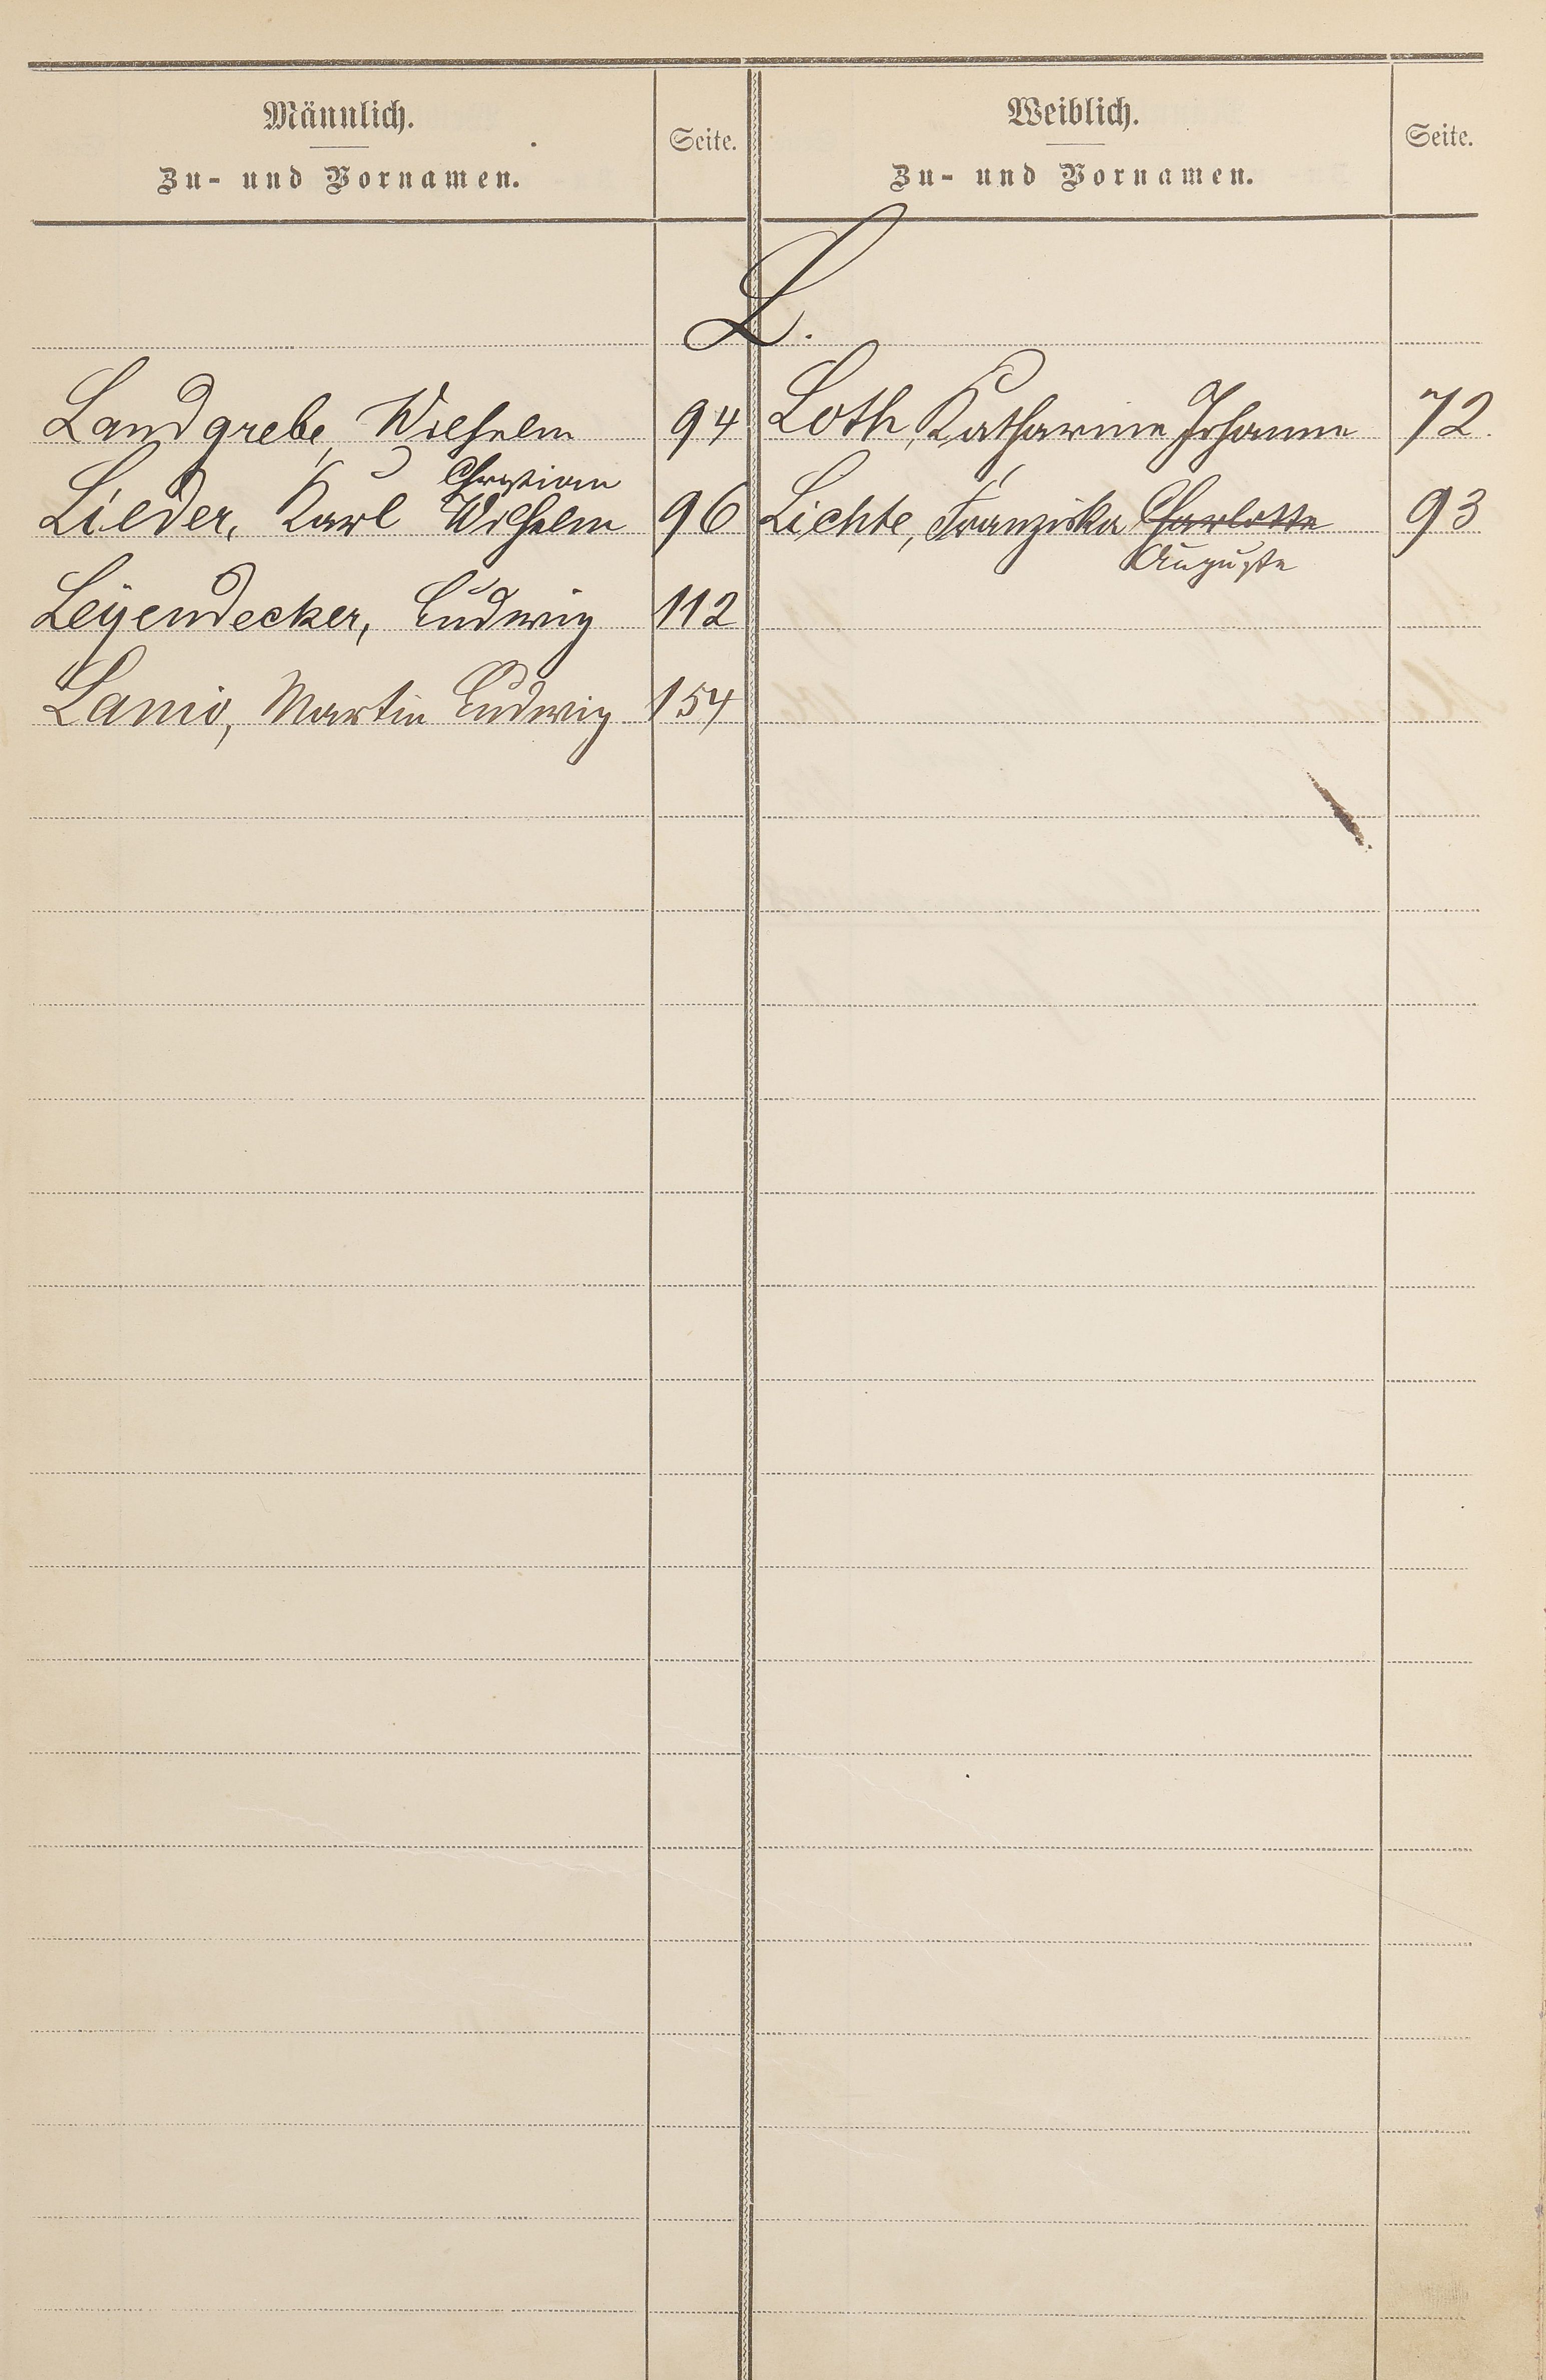 Männlich.
Zu- und Vornamen.
Seite.
Weiblich.
Zu- und Vornamen.
Seite.
L.
Landgrebe, Wilhelm 94
Christian
Lieder, Karl Wilhelm 96
Leÿendecker, Ludwig 112
Lamio, Martin Ludwig 154
Loth, Katharine Johanne 72.
Lichte, Franziska Charlotte 93
Auguste